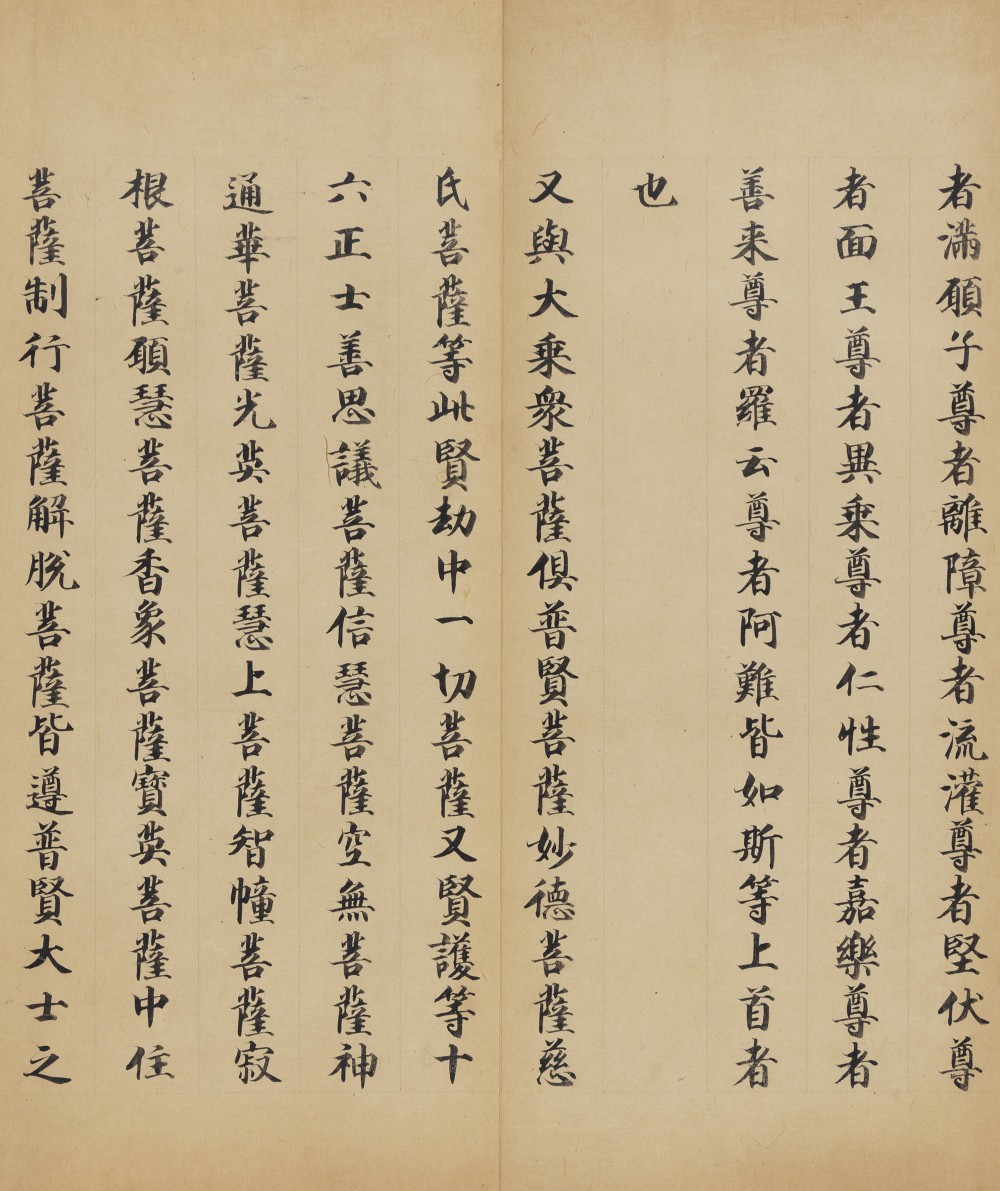 者滿願子尊者離障尊者流灌尊者堅伏尊
者面王尊者異乘尊者仁性尊者嘉樂尊者
善来尊者羅云尊者阿難皆如斯等上首者
也
又與大乘衆菩薩俱普賢菩薩妙德菩薩慈
氏菩薩等此賢劫中一切菩薩又賢護等十
六正士善思議菩薩信慧菩薩空無菩薩神
通華菩薩光英菩薩慧上菩薩智幢菩薩寂
根菩薩願慧菩薩香象菩薩寶英菩薩中住
菩薩制行菩薩解脫菩薩皆遵普賢大士之